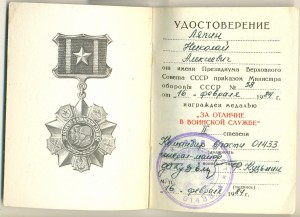 УДОСТОВЕРЕНИЕ
Ляпин
Николай
Алексеевич
от имени Президиума Верховного
Совета СССР приказом Министра
обороны СССР № 38
от "16" февраля 1984 г.
награжден медалью
"ЗА ОТЛИЧИЕ
В ВОИНСКОЙ СЛУЖБЕ"
II степени
Командир части 01433
генерал-майор
"16" февраля 1984 г.